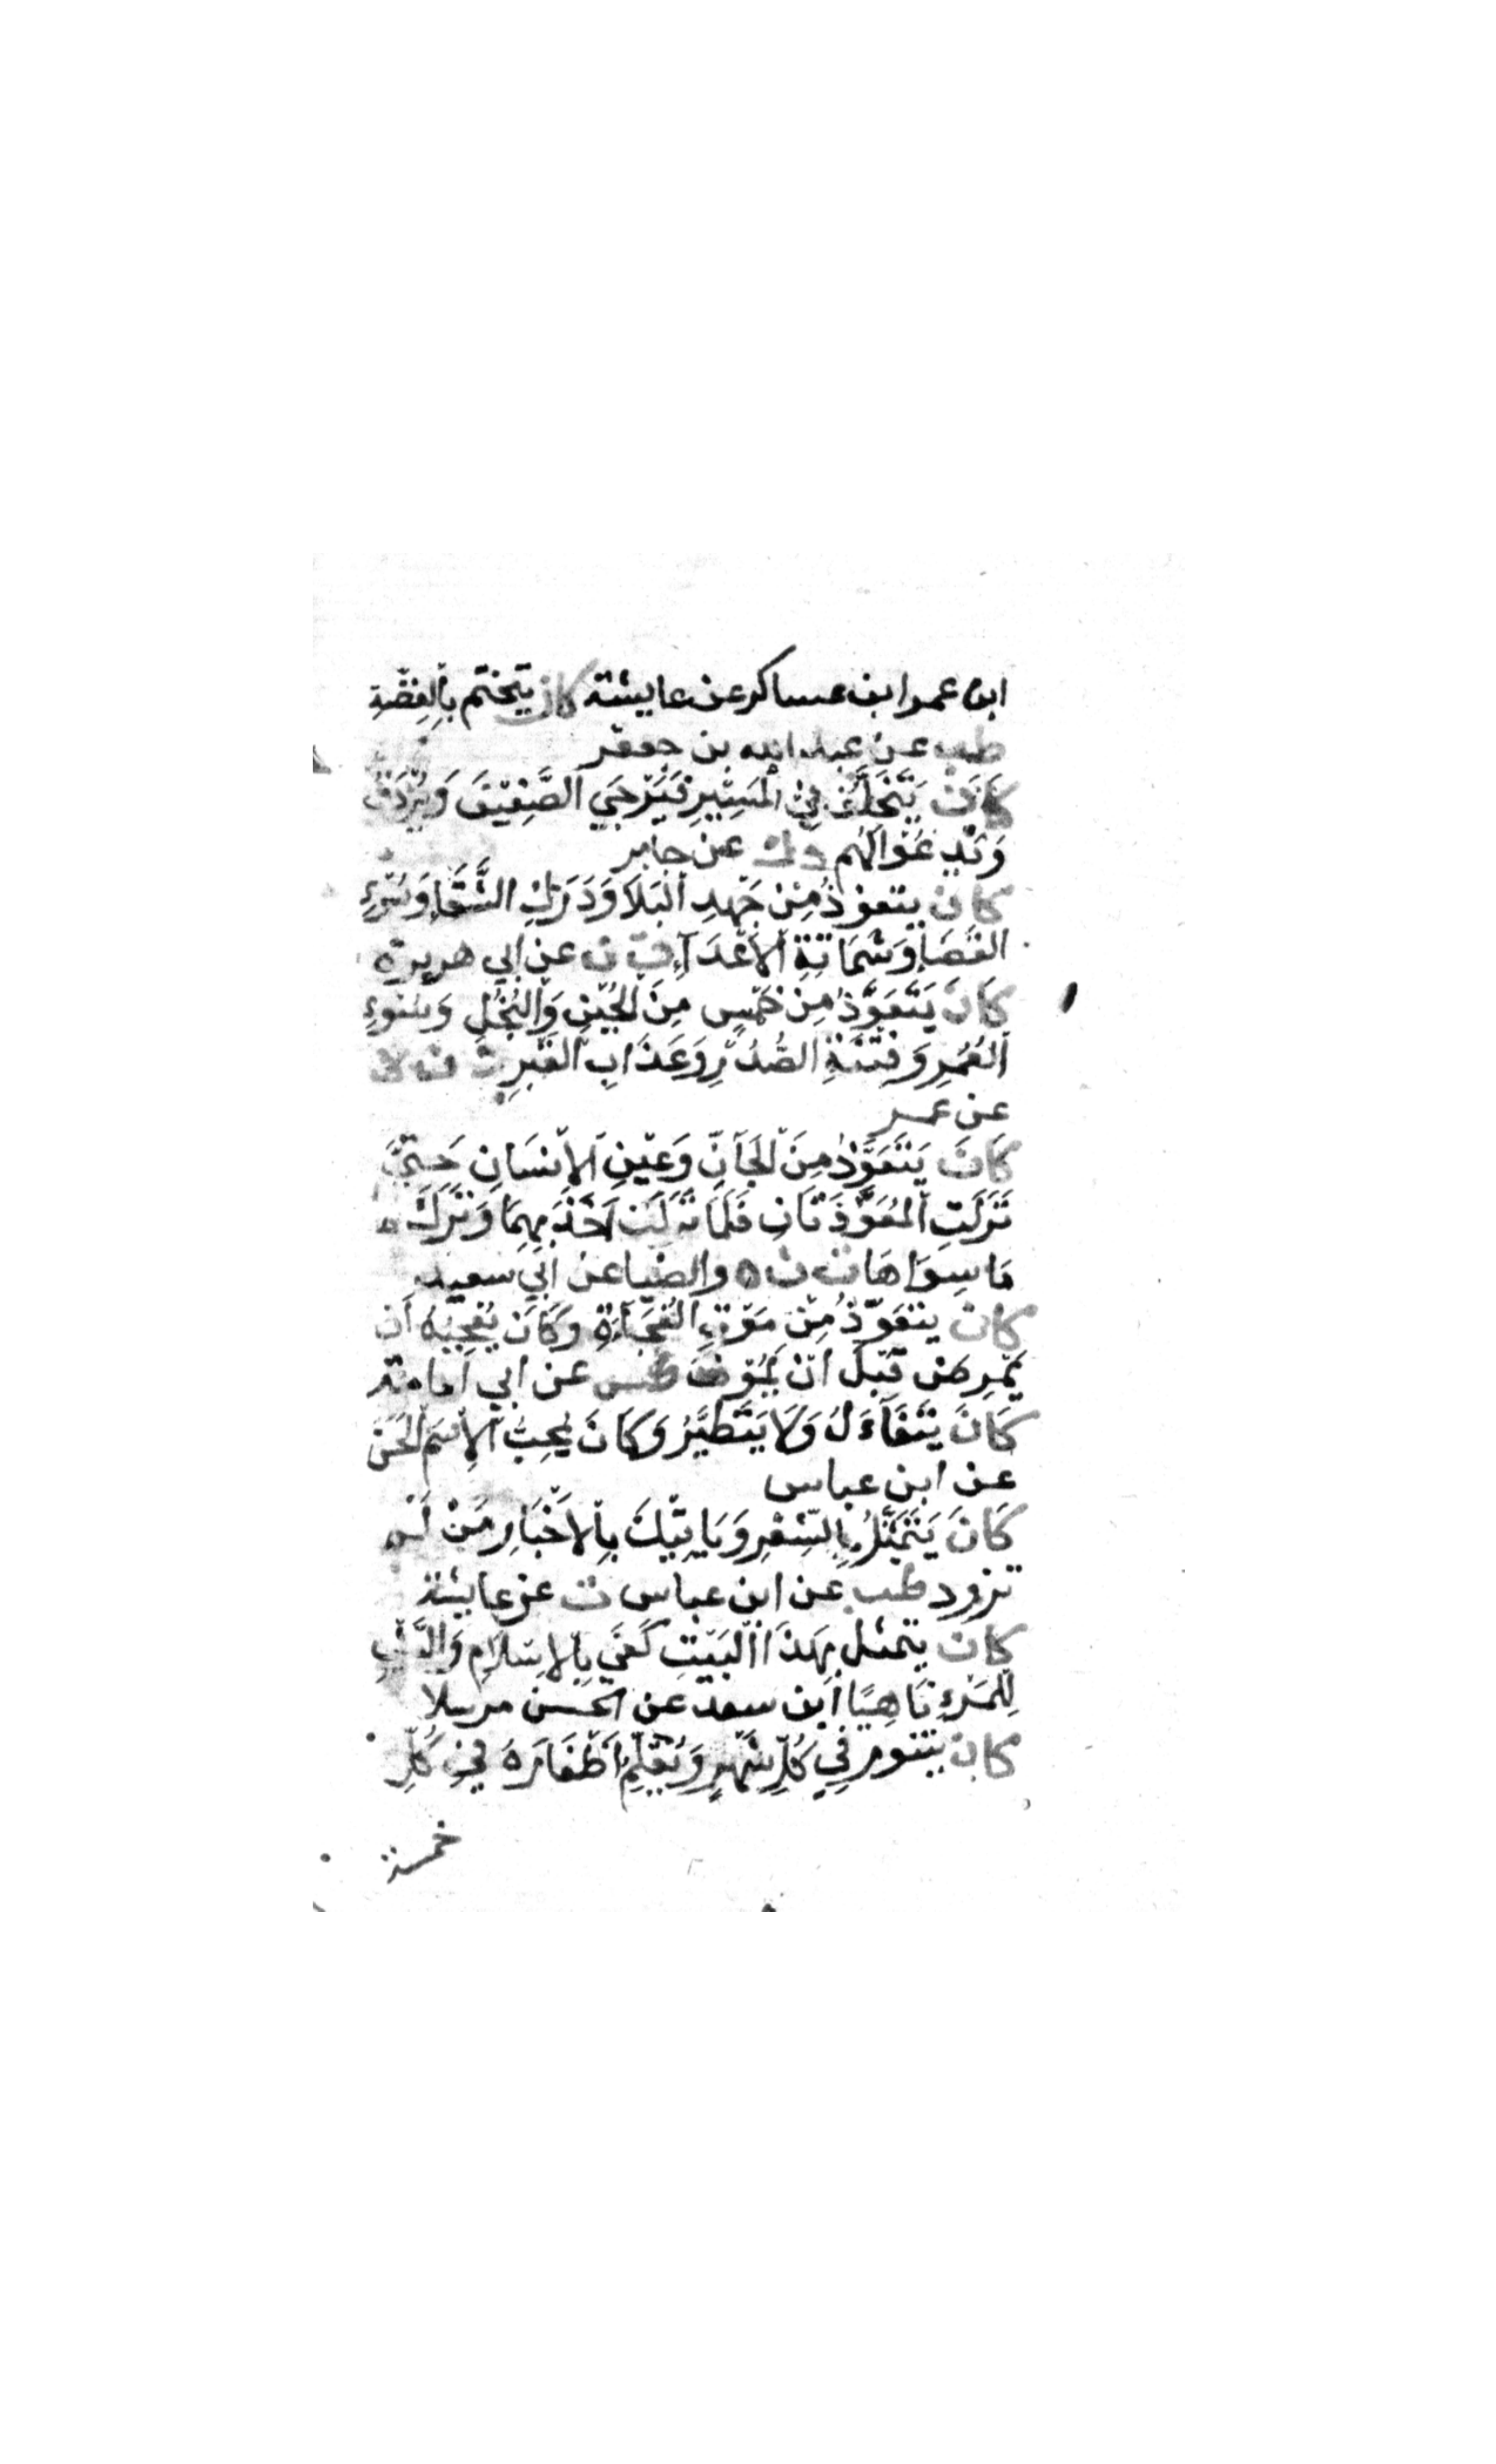 ابن عمر ابن عساكر عن عايشة كان يتختم بالفضة
طب عن عبد الله بن جعفر
كَانَ يَتَخَلَّفُ فِي الْمَسِيرِ فَيُزْجِي الضَّعِيفَ وَيُرْدِفُ
وَيَدْعُوا لَهُم د ك عن جابر
كان يتعوذُ مِنْ جَهْدِ الْبَلَا وَدَرَكِ الشَّقَاءِ وَسُوءِ
الْقَضَاءِ وَشَمَاتَةِ الْأَعْدَآءِ ق ن عن أبي هريرة
كَانَ يَتَعَوَّذُ مِنْ خَمْسٍ مِنَ الْجُبْنِ وَالْبُخْلِ وَسُوءِ
الْعُمُرِ وَفِتْنَةِ الصُّدُرِ وَعَذَابِ الْقَبْرِ د ن ه
عن عمر
كَانَ يَتَعَوَّذُ مِنَ الْجَآنِّ وَعَيْنِ الْإِنْسَانِ حَتَّى
نَزَلَتِ الْمُعَوَّذَتَانِ فَلَمَّا نَزَلَتْ أَخَذَ بِهِمَا وَتَرَكَ
مَا سِوَاهَا ت ن ه والضيا عن أبي سعيد
كان يتعَوّذُ مِنْ مَوْتِ الْفُجَآءَةِ وَكَانَ يُعْجِبُهُ أَن
يَمْرِضَ قَبْلَ أَنْ يَمُوتَ طس عن أبي أمامة
كَانَ يَتَفَآءَلُ وَلَا يَتَطَيَّرُ وَكَانَ يُحِبُّ الْإِسْمَ الْحَسَنَ
عن ابن عباس
كَانَ يَتَمَثَّلُ بِالشِّعْرِ وَيَاتِيْكَ بِالْأَخْبَارِ مَنْ لَمْ
تزود طب عن ابن عباس ت عن عايشة
كان يتمثل بِهَذَا الْبَيْتِ كَفَى بِالْإِسْلَامِ وَالشَّيْبِ
لِلْمَرْءِ نَاهِيًا ابن سعد عن الحسن مرسلا
كان يتنور فِي كُلِّ شَهْرٍ وَيُقَلِّمُ أَظْفَارَهُ فِي كُلِّ
خمسة